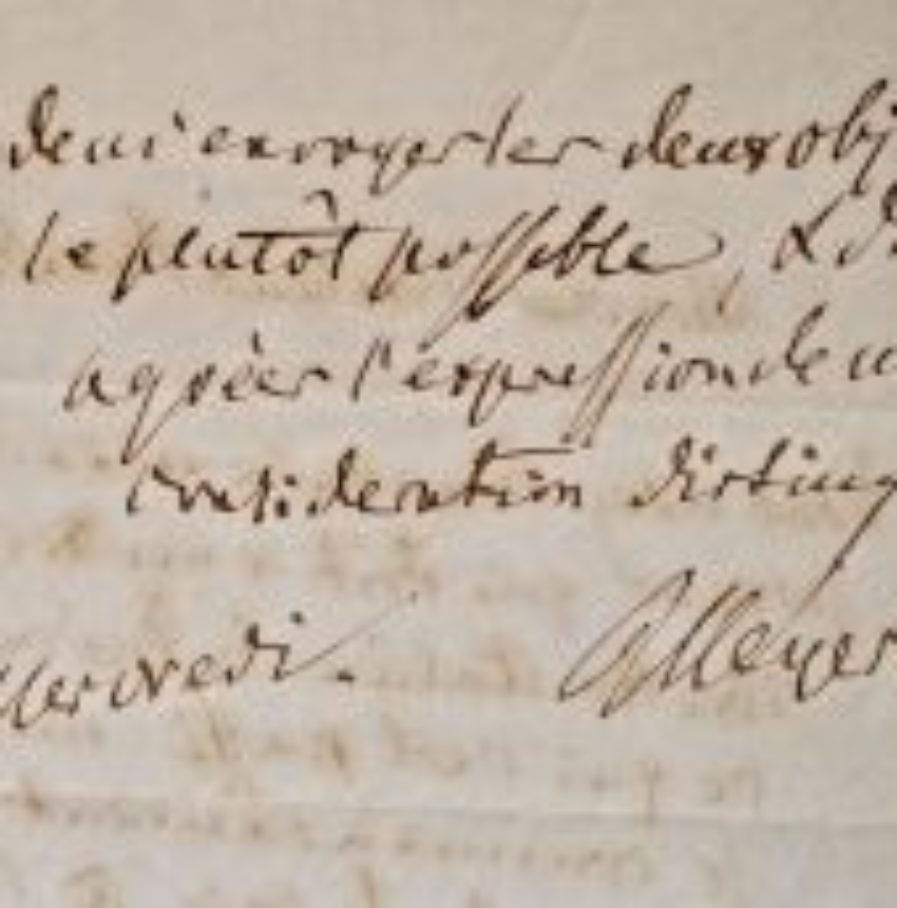 de m'envoyer les deux obj
le plutôt possible, & d'
agréer l'expression de m
consideration disting
Mercredi. Meyer